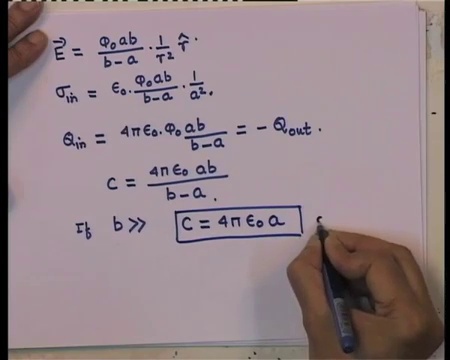 E⃗ = φ₀ab/(b-a) · 1/r² r̂.
σin = ε₀. φ₀ab/(b-a) · 1/a².
Qin = 4πε₀. φ₀ ab/(b-a) = - Qout.
C = 4πε₀ ab/(b-a).
If b >> C = 4πε₀a